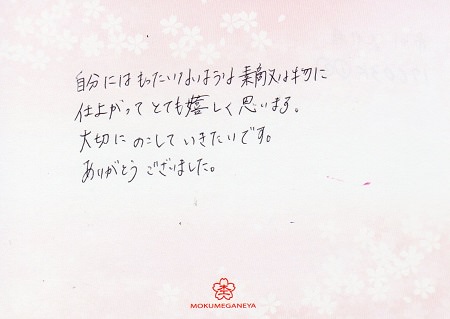 自分にはもったいないような素敵な物に
仕上がってとても嬉しく思います。
大切にのこしていきたいです。
ありがとうございました。
MOKUMEGANEYA